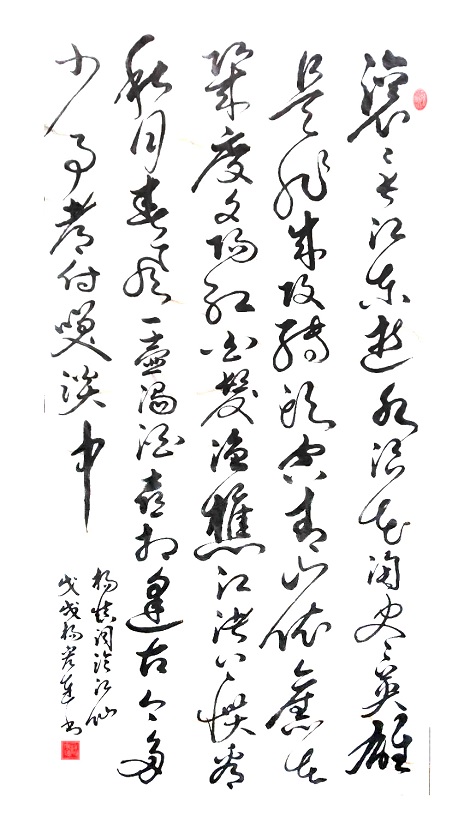 滚滚长江东逝水浪花淘尽英雄
是非成败转头空青山依舊在
几度夕阳红白髮渔樵江渚上惯看
秋月春风一壶浊酒喜相逢古今多
少事都付笑谈中
杨慎词临江仙
戊戌杨书